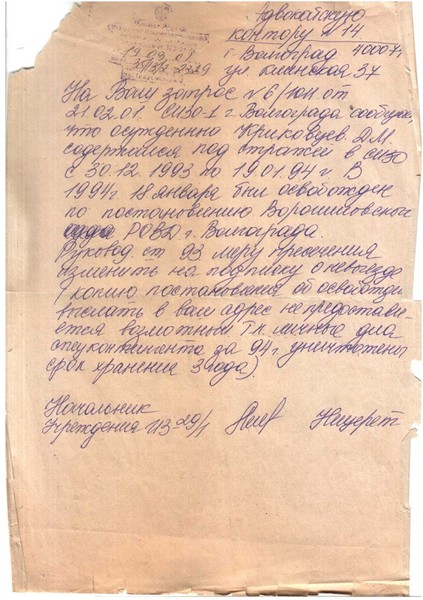 Адвокатскую
контору №14
г. Волгоград 40007
ул. Киенская 37
19.03.01
На Вашу запрос №6/ЮН от
21.02.01. СИЗО-1 г. Волгограда сообщ
что осужденна Криковцев Д.М.
содержался под стражей в СИЗО
с 30.12 1993 по 19.01.94г. В
1994г 18 января был освобожден
по постановлению Ворошиловского
РОВД г. Волгограда.
Руковод. ст 93 меру пресечения
изменить на подписку о невыезде
(копию постановления об освобожд
выслать в ваш адрес не представи-
ется возможным т.к. личные дела
спецконтингента за 94г. уничтожены
срок хранения 3 года)
Начальник
Учреждения ИЗ 29/1